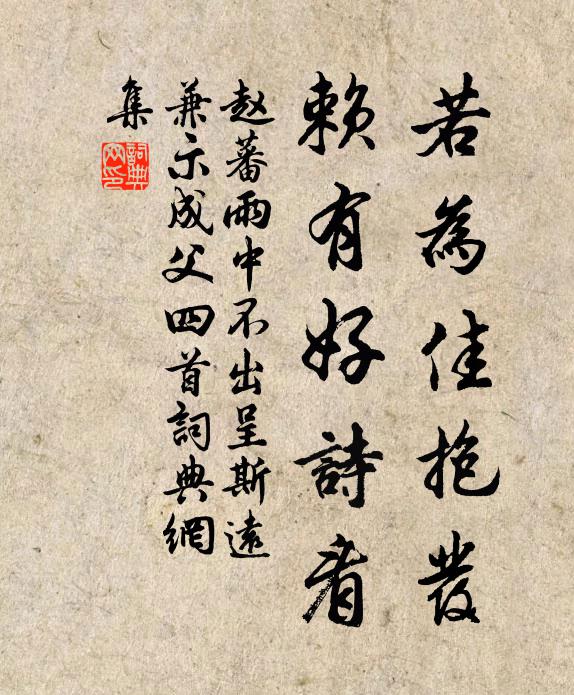 若為佳抱發
賴有好詩看
趙蕃雨中不出呈斯遠
兼示成父四首詞典網
集
詞典網印